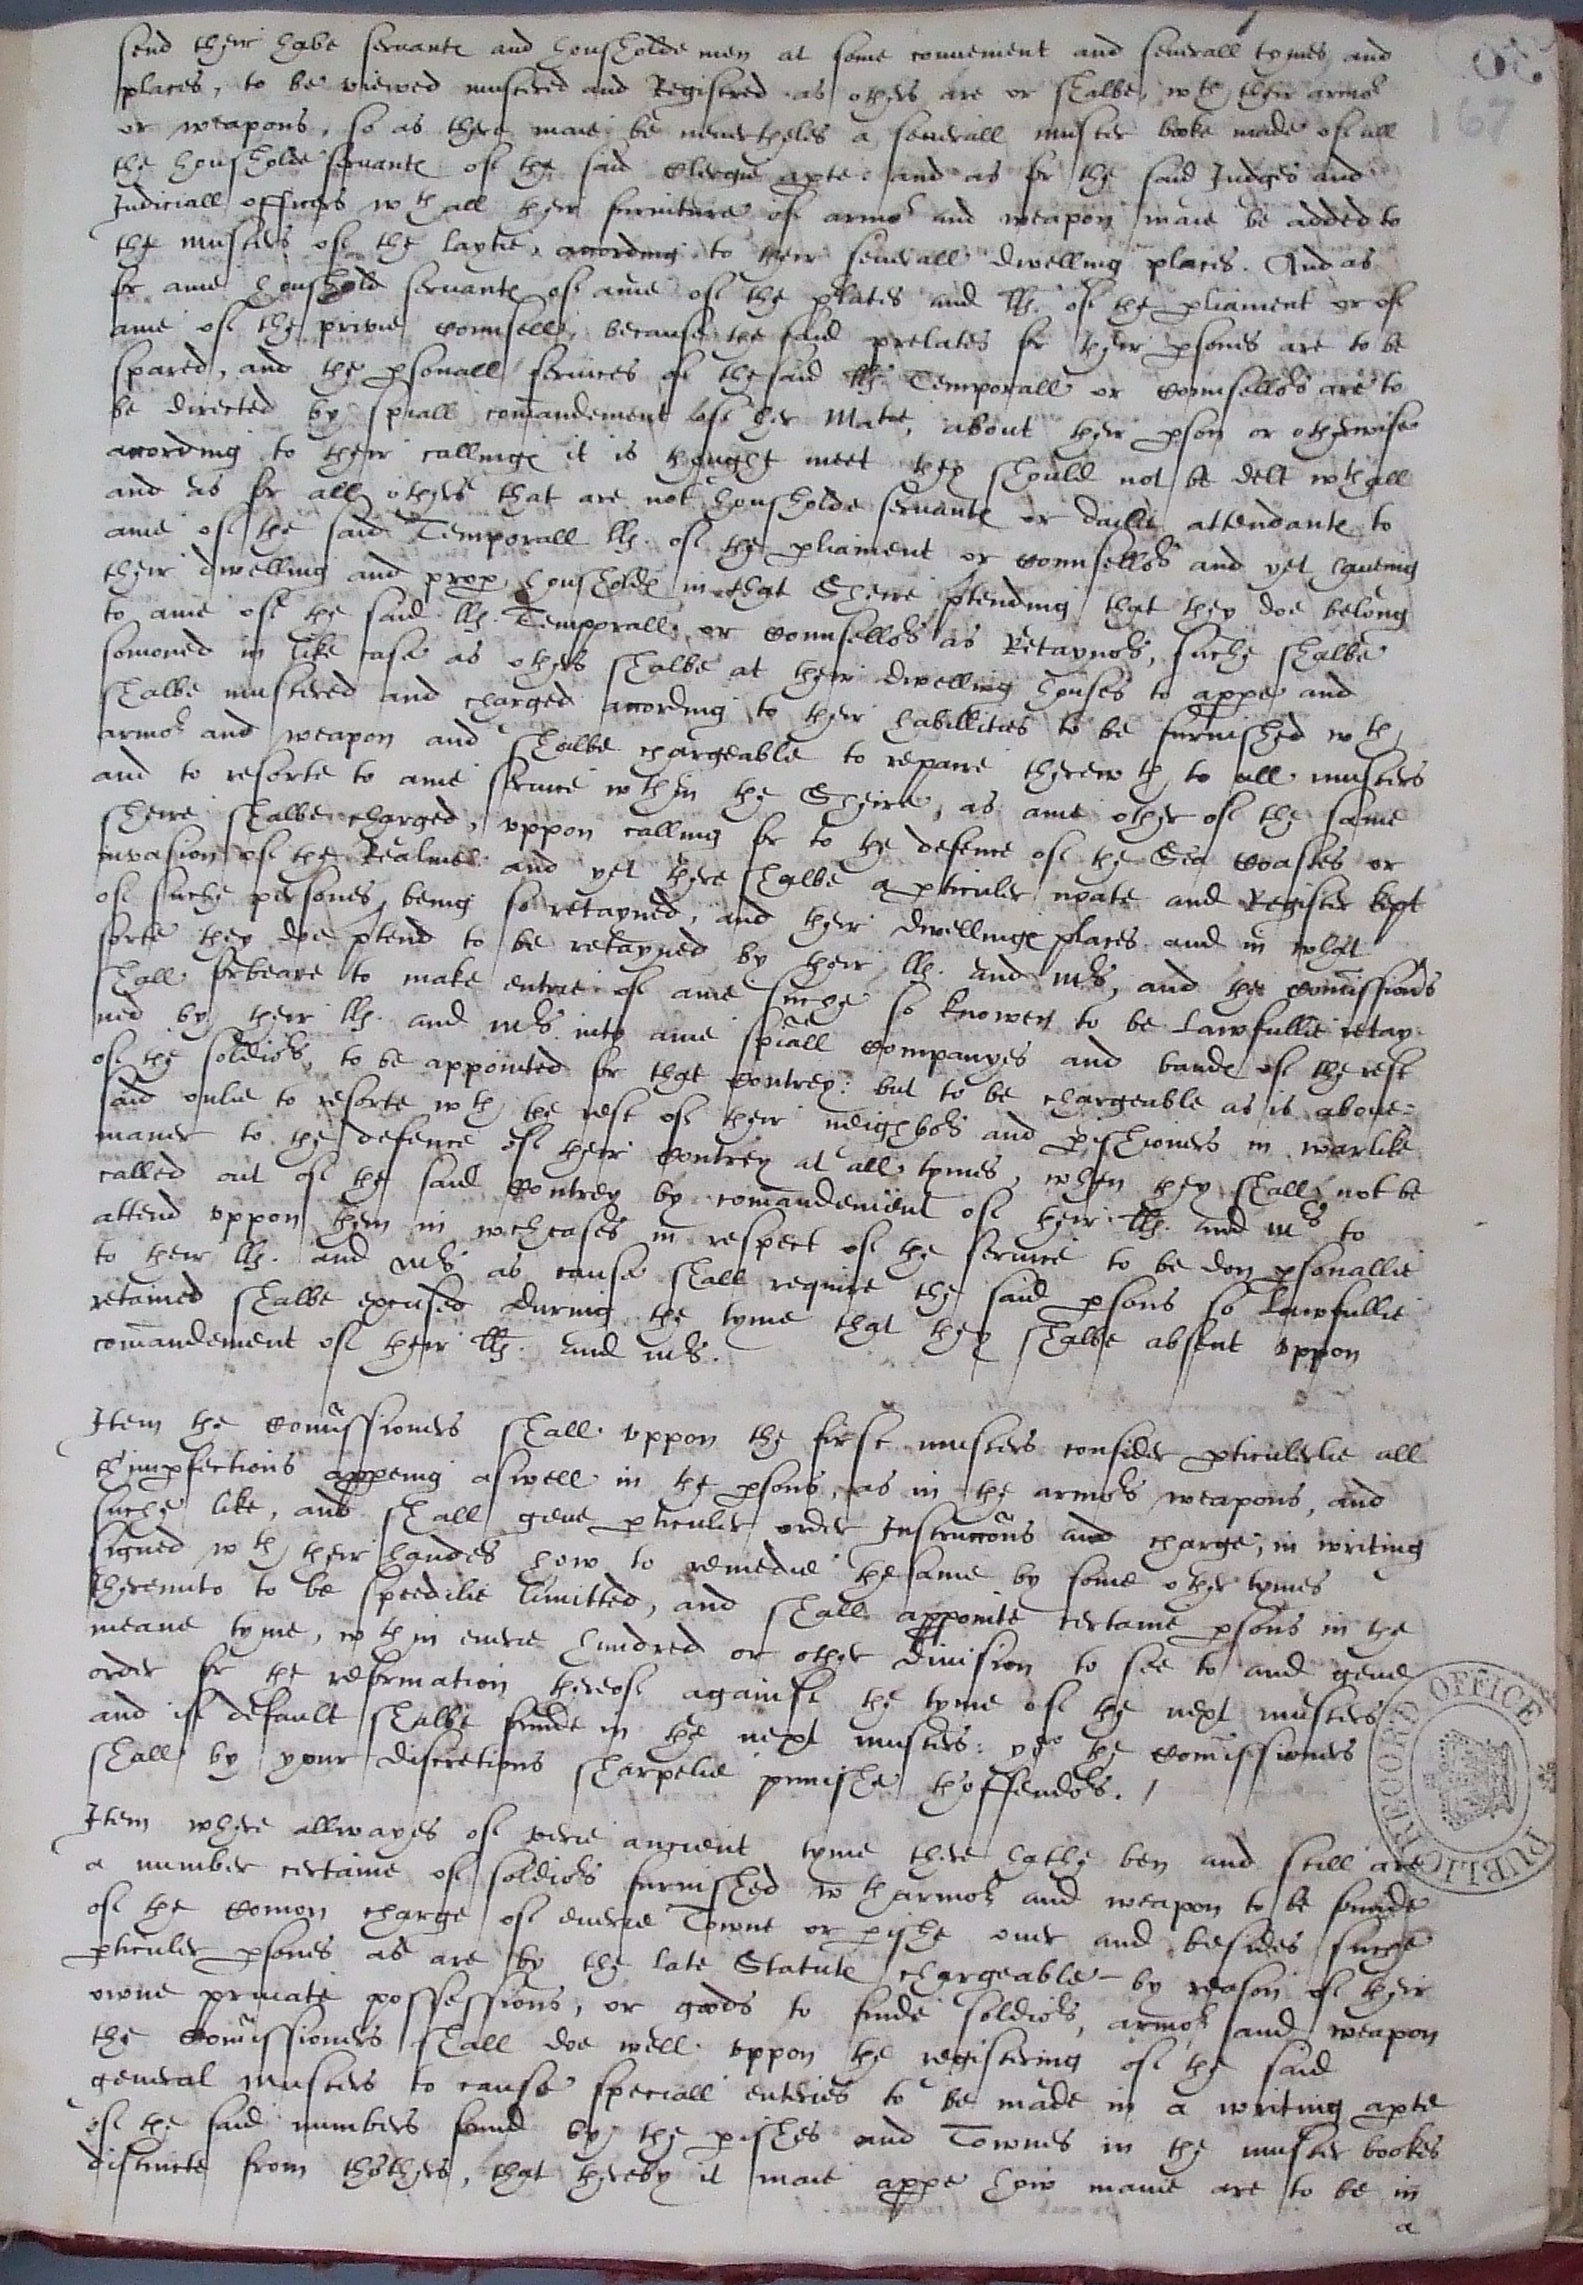 send their habe servante and housholde men at some convenient and severall tymes and
places, to be viewed mustered and Registred as others are or shalbe, wth their armor
or weapons, so as there maie be nevertheles a severall muster booke made of all
the housholde servante of the said Clergie apte: and as for the said Judges and
Judiciall officers wth all their furniture of armor and weapon maie be added to
the musters of the laytie, according to their severall dwelling places. And as
for anie houshold servante of anie of the plates and llh. of the pliament or of
anie of the privie Counsell, because the said prelates for their psones are to be
spared, and the psonall services of the said llh. Temporall or Counsellors are to
be directed by spiall comandement of her Matie, about her pson or otherwise
according to their callinge it is thought meet they should not be delt wthall
and as for all others that are not housholde servante or dailie attendante to
anie of the said Temporall llh. of the pliament or Counsellors and yet haveing
their dwelling and prop housholde in that Sheire ptending that they doe belong
to anie of the said llh. Temporall or Counsellors as Retaynors, suche shalbe
somoned in like case as others shalbe at their dwelling houses to appe and
shalbe mustered and charged according to their habillities to be furnished wth
armor and weapon and shalbe chargeable to repaire therewth to all musters
and to resorte to anie service wthin the Sheire, as anie other of the same
sheire shalbe charged, uppon calling for to the defence of the Sea Coastes or
invasion of the Realme: and yet there shalbe a pticuler noate and Register kept
of suche persones, being so retayned, and their dwellinge places and in what
sorte they doe ptend to be retayned by their llh. and mrs, and the Comissioners
shall forbeare to make entrie of anie suche so knowen to be Lawfullie retay-
ned by their llh. and mrs into anie spiall Companyes and bande of the rest
of the soldiors, to be appointed for that Contrey: but to be chargeable as is above-
said onlie to resorte wth the rest of their neighbors and pishioners in warlike
maner to the defence of their Contrey at all tymes, when they shall not be
called out of the said Contrey by comandement of their llh. and mrs to
attend uppon them in wch cases in respect of the service to be don psonallie
to their llh. and mrs as cause shall require the said psons so Lawfullie
retained shalbe excused during the tyme that they shalbe absent uppon
comandement of their llh. and mrs.
Item the Comissioners shall uppon the first musters consider pticulerlie all
thimpfections appeing aswell in the psons, as in the armors weapons, and
suche like, and shall geve pticuler order Instruccons and charge, in writing
signed wth their handes how to remedie the same by some other tymes
thereunto to be speedilie limitted, and shall appointe certaine psons in the
meane tyme, wthin everie hundred or other division to see to and geve
order for the reformation thereof against the tyme of the next musters
and if default shalbe founde in the next musters: yor the Comissioners
shall by your discretions sharpelie punishe thoffendors. /
Item where allwayes of verie auncient tyme there hathe ben and still are
a number certaine of soldiors furnished wth armor and weapon to be founde
of the Comon charge of everie Towne or pishe over and besides suche
pticuler psones as are by the late Statute chargeable by reason of their
owne private possessions, or goods to finde soldiors, armor and weapon
the Comissioners shall doe well uppon the registering of the said
general musters to cause speciall enteries to be made in a writing apte
of the said numbers found by the pishes and Townes in the muster bookes
distincte from thothers, that thereby it maie appe how manie are to be in
a
167
PUBLIC RECORD OFFICE